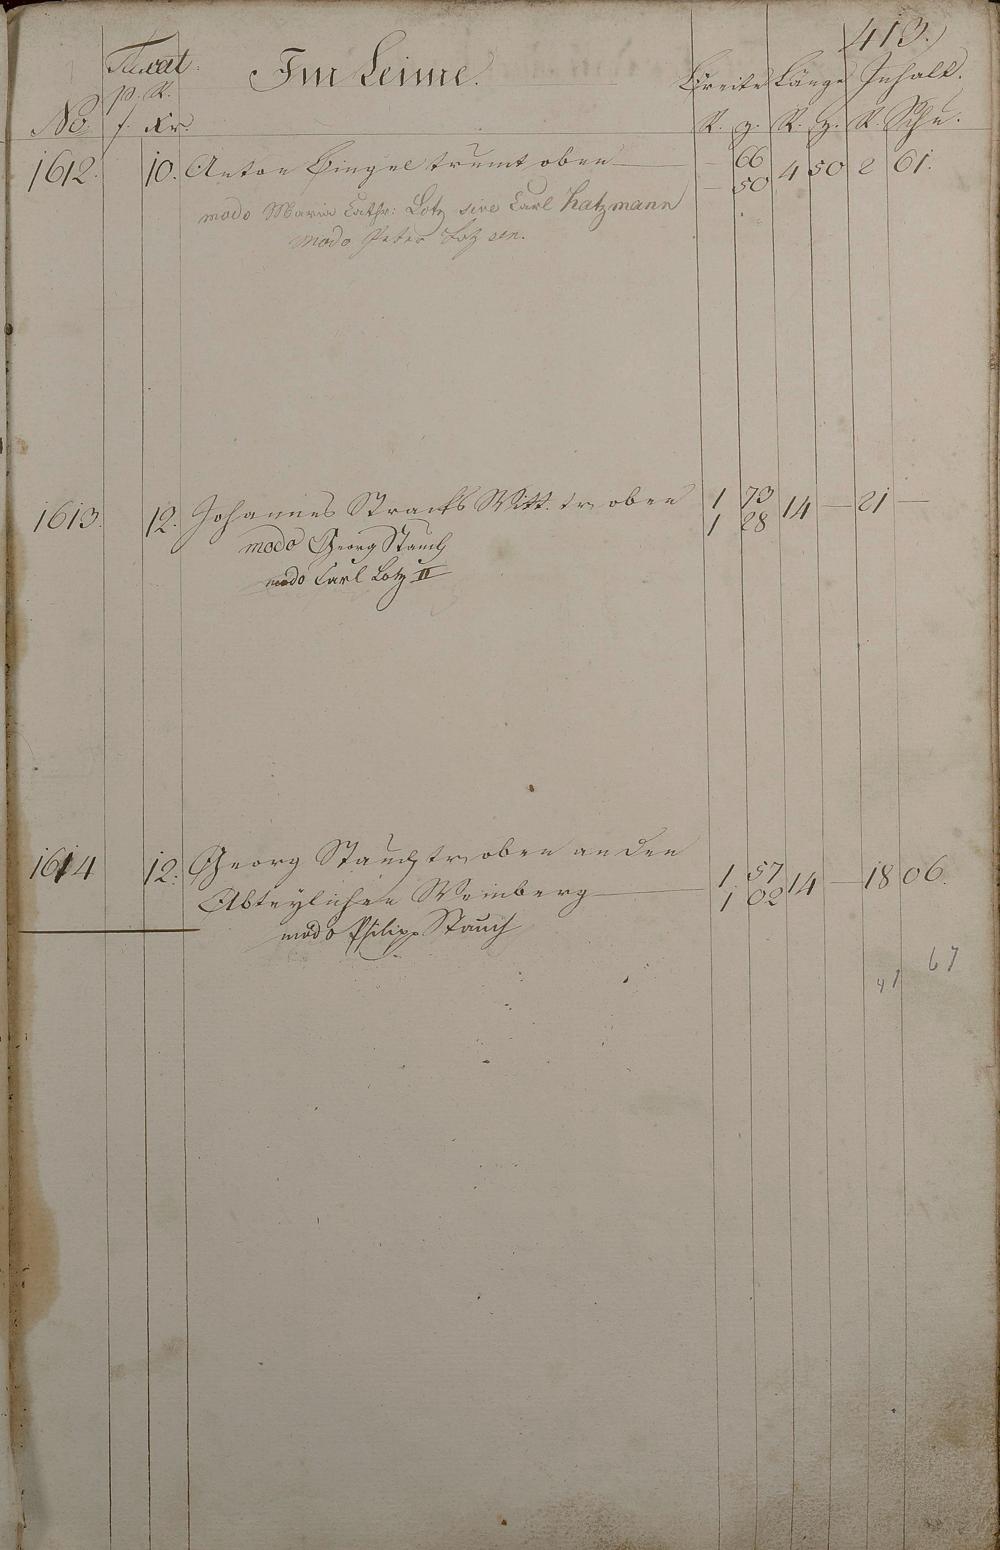 413.)
Taxat. Im Leime. Breite Länge Inhalt.
p. R.
No f. Kr. R. z. R. z. R. Schu.
1612. 10. Anton Bingel trumt oben — — 66 4 50 2 61.
— 50
modo Maria Cathr: Lotz sive Carl Katzmann
modo Peter Lotz sen.
1613. 12. Johannes Stracks Witt. tr oben 1 73 14 — 21 —
1 28
modo Georg Stauch
modo Carl Lotz II
1614 12. Georg Stauch tr oben an den
Abteylichen Weinberg — 1 57 14 — 18 06.
1 02
modo Philipp Stauch
41 67